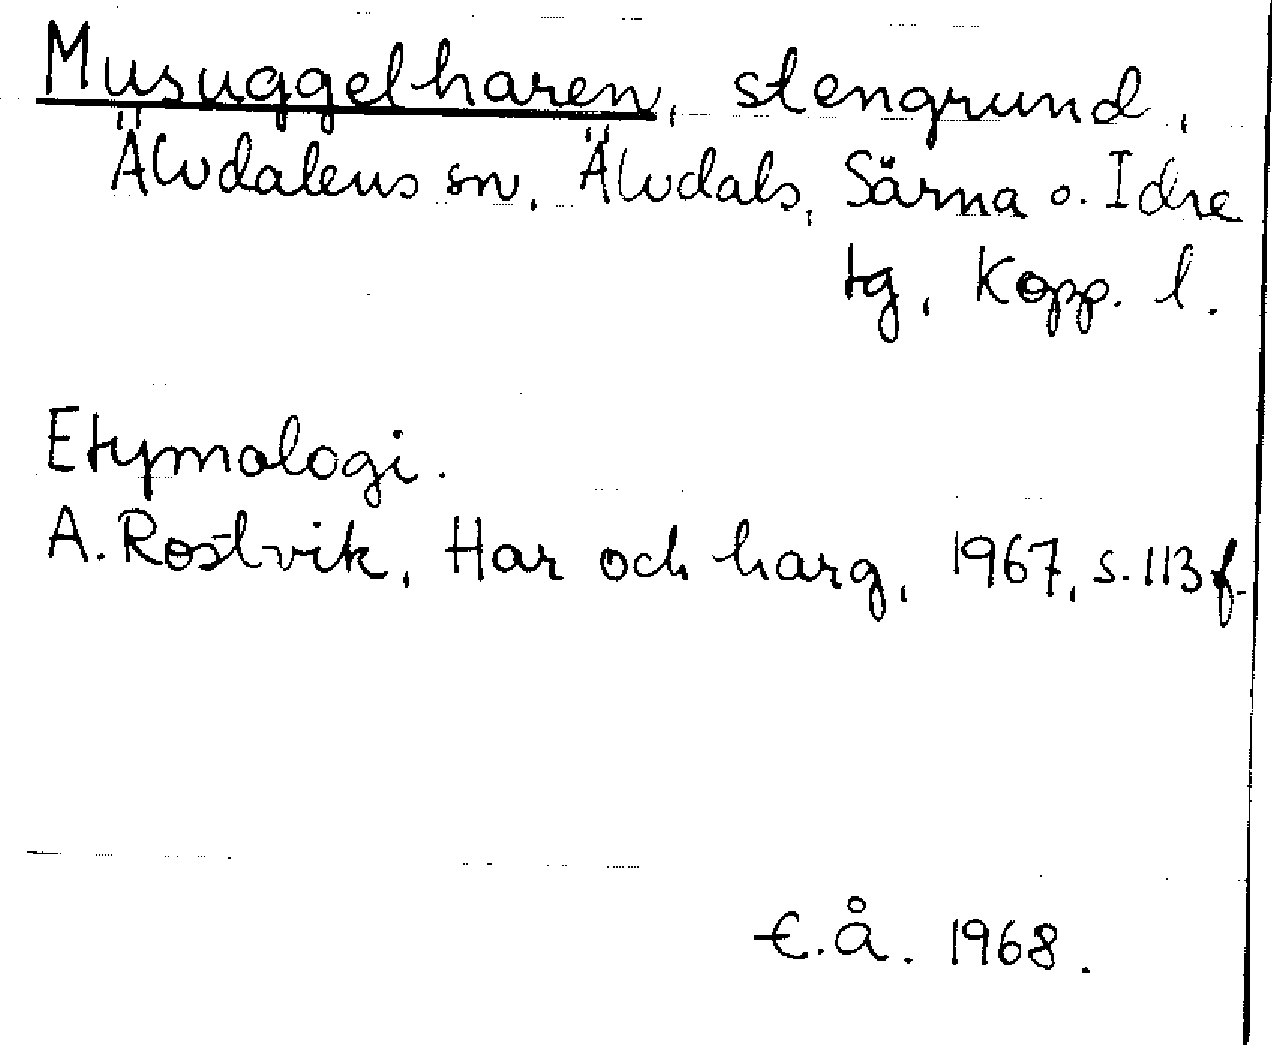 Musuggelharen, stengrund,
Älvdalens sn, Älvdals, Särna o. Idre
tg, Kopp. l.
Etymologi.
A. Rostvik, Har och harg, 1967, s. 113 f.
E.Å. 1968.